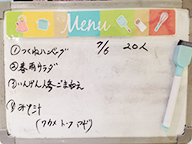 Menu
①つくねハンバーグ 7/6 20人
②春雨サラダ
③いんげん人参ごまねえ
④みそ汁
(ワカメ トーフ ネギ)